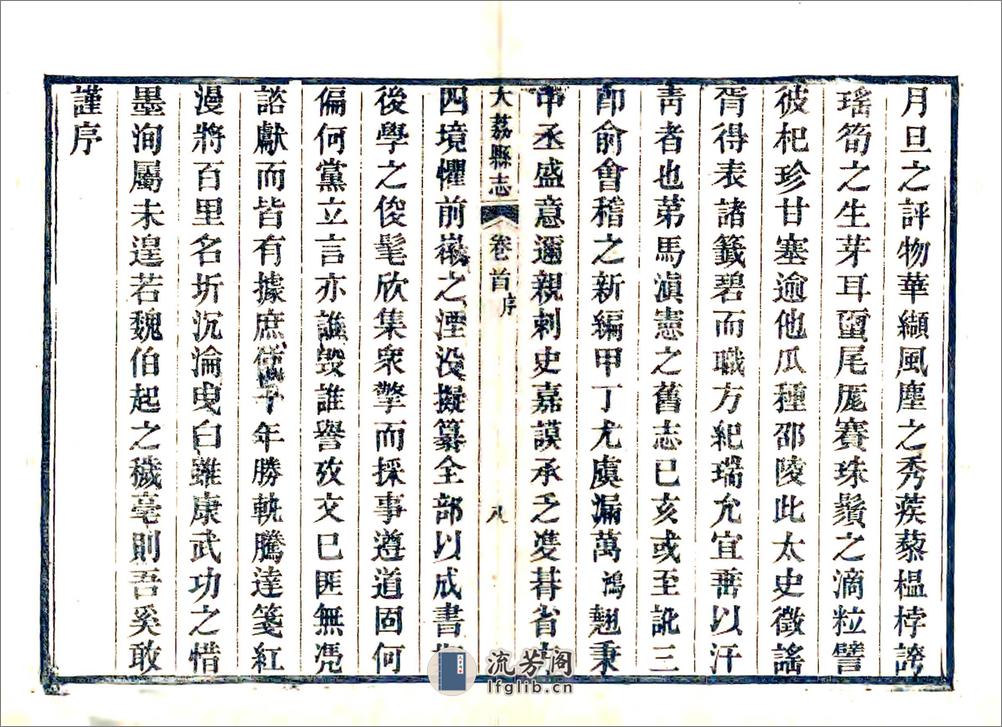 月旦之評物華纈風塵之秀蒺藜榲桲誇
瑤筍之生芽耳璽尾厖賽珠鬚之滴粒譬
彼杞珍甘塞逾他瓜種邵陵此太史徵謠
胥得表諸籤碧而職方紀瑞允宜垂以汗
靑者也苐馬滇憲之舊志已亥或至訛三
郎俞會稽之新編甲丁尤虞漏萬鴻翹秉
中丞盛意邇親刺史嘉謨承乏嵏朞省
大荔縣志
卷首
序
八
四境懼前徽之湮没擬纂全部以成書
後學之俊髦欣集衆擎而採事遵道固何
偏何黨立言亦誰毀誰譽攷文已匪無馮
諮獻而皆有據庶年勝軌騰達箋紅
漫將百里名圻沉淪曳白雖康武功之惜
墨洵屬未遑若魏伯起之穢毫則吾奚敢
謹序
流芳阁
lfglib.cn